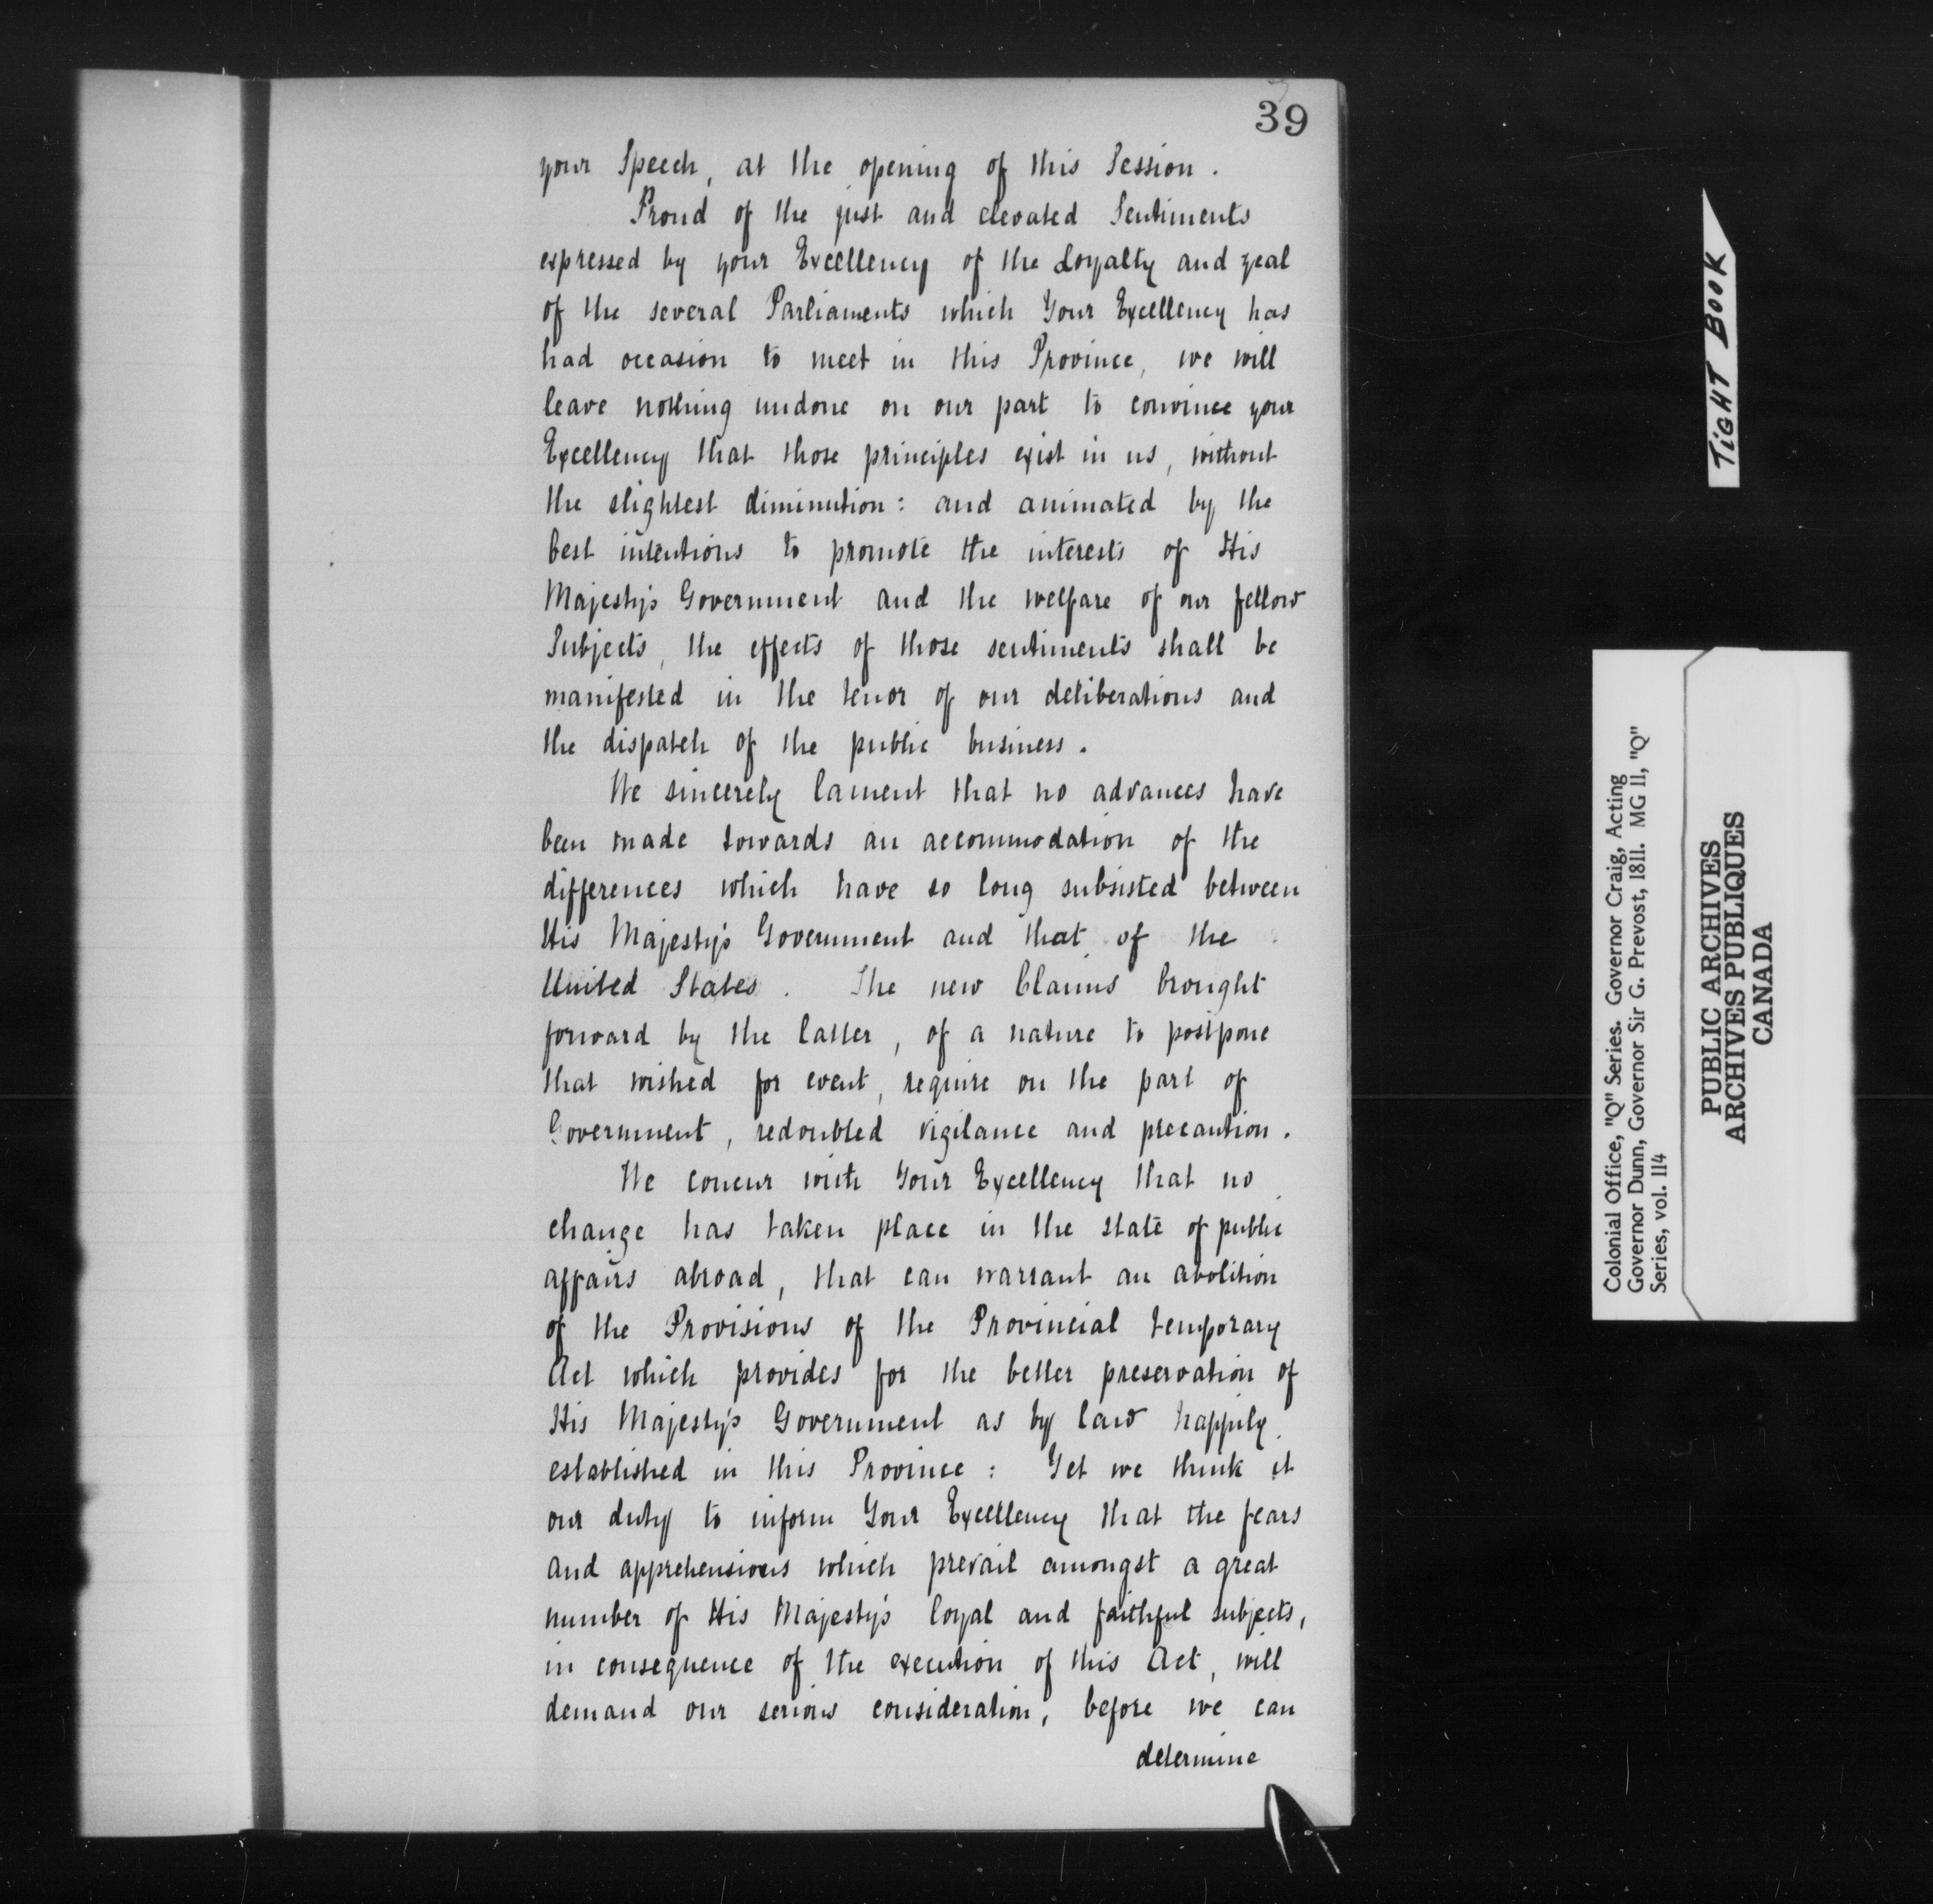 39
your Speech, at the opening of this Session.
Proud of the just and elevated Sentiments
expressed by your Excellency of the Loyalty and zeal
of the several Parliaments which Your Excellency has
had occasion to meet in this Province, we will
leave nothing undone on our part to convince your
Excellency that those principles exist in us, without
the slightest diminution: and animated by the
best intentions to promote the interests of His
Majesty's Government and the welfare of our fellow
Subjects, the effects of those sentiments shall be
manifested in the tenor of our deliberations and
the dispatch of the public business.
We sincerely lament that no advances have
been made towards an accommodation of the
differences which have so long subsisted between
His Majesty's Government and that of the
United States. The new Claims brought
forward by the latter, of a nature to postpone
that wished for event, require on the part of
Government, redoubled vigilance and precaution.
We concur with Your Excellency that no
change has taken place in the state of public
affairs abroad, that can warrant an abolition
of the Provisions of the Provincial temporary
Act which provides for the better preservation of
His Majesty's Government as by law happily
established in this Province: Yet we think it
our duty to inform Your Excellency that the fears
and apprehensions which prevail amongst a great
number of His Majesty's loyal and faithful subjects,
in consequence of the execution of this Act, will
demand our serious consideration, before we can
determine
TIGHT BOOK
Colonial Office, "Q" Series. Governor Craig, Acting
Governor Dunn, Governor Sir G. Prevost, 1811. MG 11, "Q"
Series, vol. 114
PUBLIC ARCHIVES
ARCHIVES PUBLIQUES
CANADA